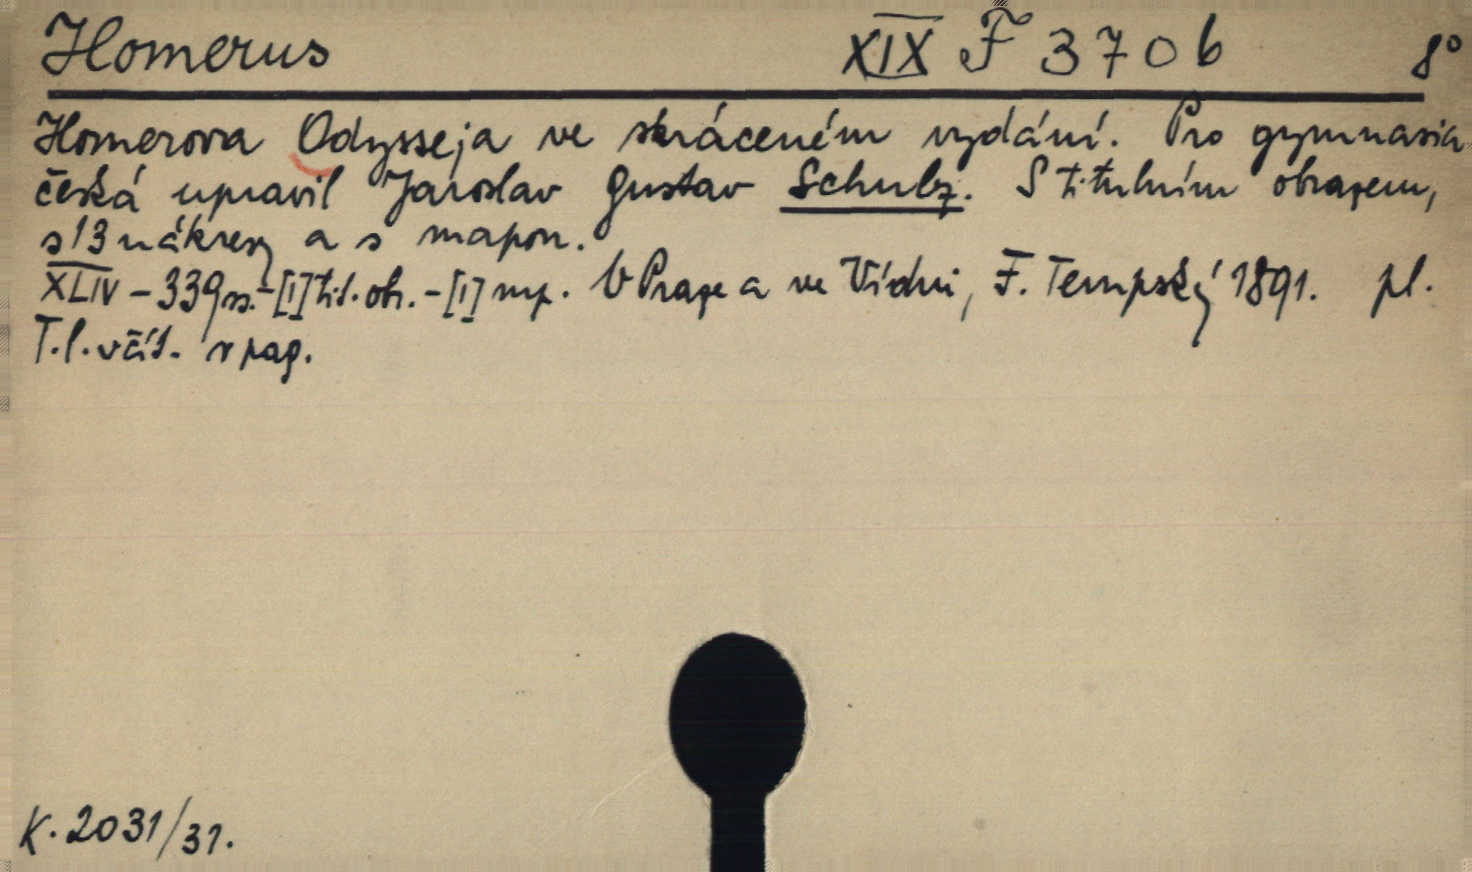 Homerus XIX F 370 b 8°
Homerova Odysseja ve skráceném vydání. Pro gymnasia
česká upravil Jaroslav Gustav Schulz. S titulním obrazem,
s 13 nákresy a s mapou.
XLIV - 339 s. - [I] tit. obr. - [I] mp. V Praze a ve Vídni, F. Tempský 1891. pl.
T. l. včít. v pag.
K. 2031/31.